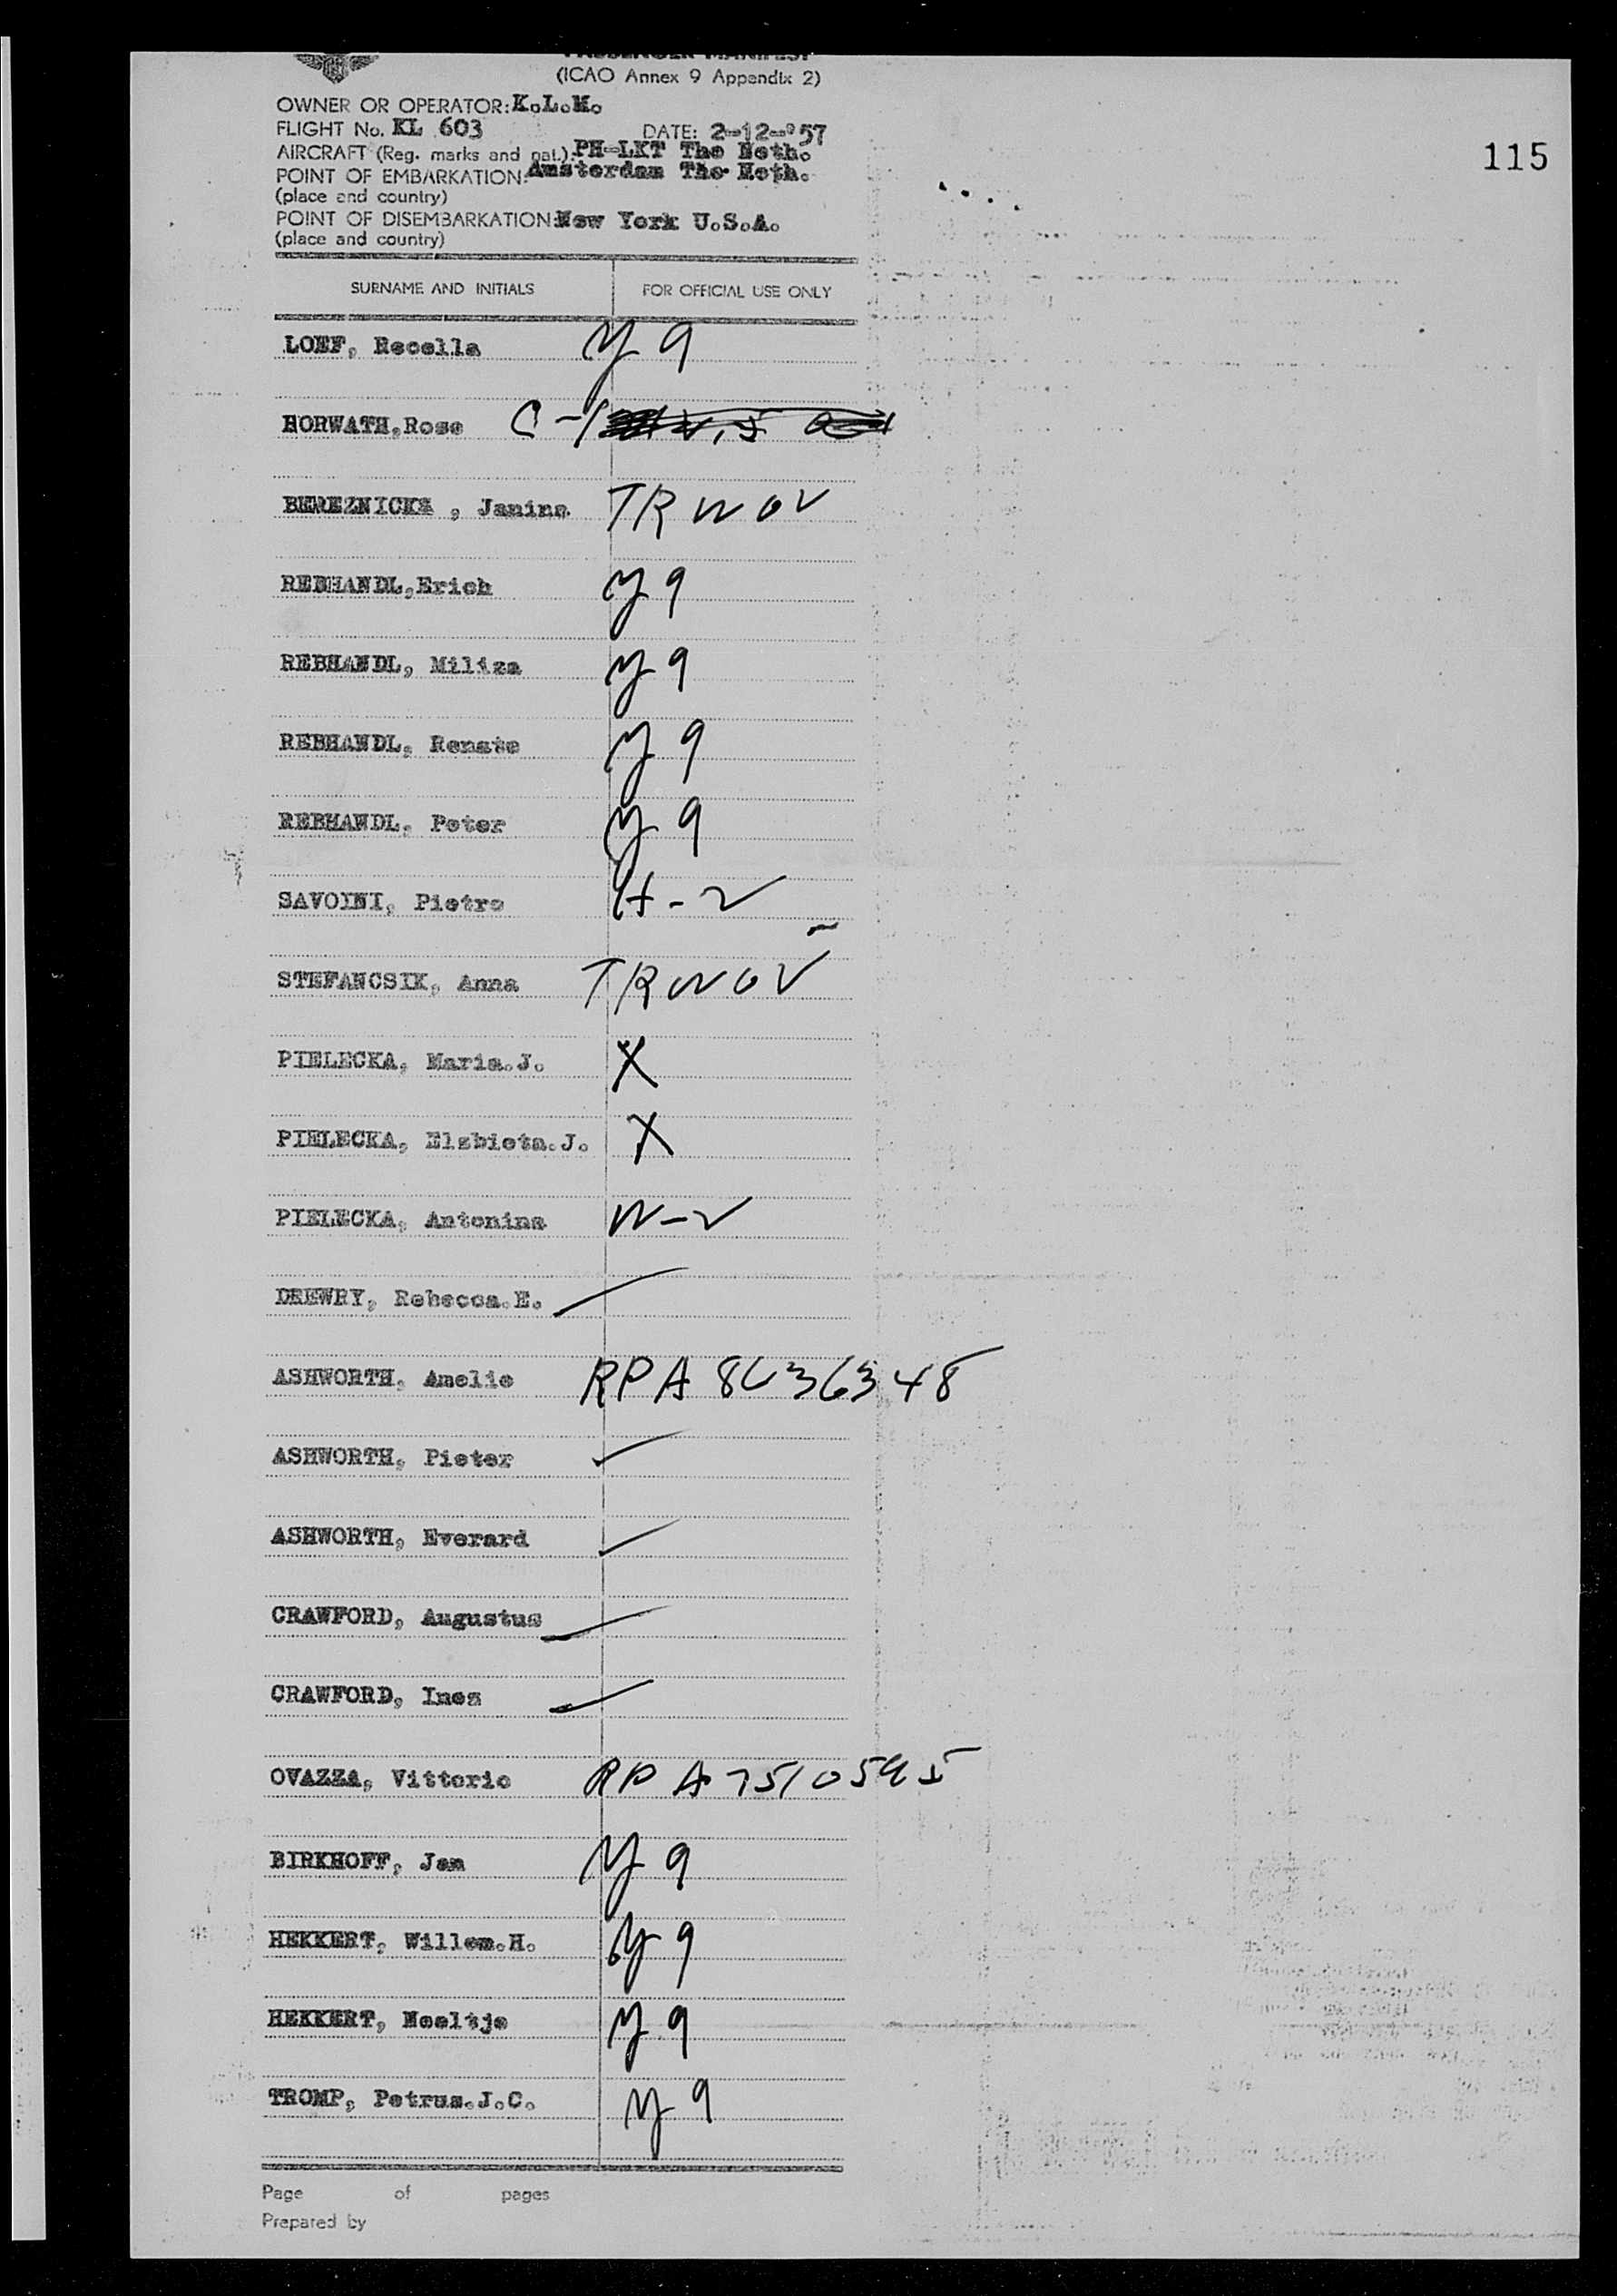 PASSENGER MANIFEST
(ICAO Annex 9 Appendix 2)
115
OWNER OR OPERATOR: K.L.M.
FLIGHT No. KL 603 DATE: 2-12-'57
AIRCRAFT (Reg. marks and nat.): PH-LKT The Neth.
POINT OF EMBARKATION: Amsterdam The Neth.
(place and country)
POINT OF DISEMBARKATION: New York U.S.A.
(place and country)
SURNAME AND INITIALS FOR OFFICIAL USE ONLY
LOEF, Recella Y 9
HORWATH,Rose C-1
BEREZNICKA , Janina TRWOV
REBHANDL,Erich Y 9
REBHANDL, Miliza Y 9
REBHANDL, Renate Y 9
REBHANDL, Peter Y 9
SAVOINI, Pietro H-2
STEFANCSIK, Anna TRWOV
PIELECKA, Maria.J. X
PIELECKA, Elzbieta.J. X
PIELECKA, Antonina
DREWRY, Rebecca.E.
ASHWORTH, Amelie RPA
ASHWORTH, Pieter
ASHWORTH, Everard
CRAWFORD, Augustus
CRAWFORD, Ines
OVAZZA, Vittorio RP A7510595
BIRKHOFF, Jan Y 9
HEKKERT, Willem.H. Y 9
HEKKERT, Neeltje Y 9
TROMP, Petrus.J.C. Y 9
Page of pages
Prepared by